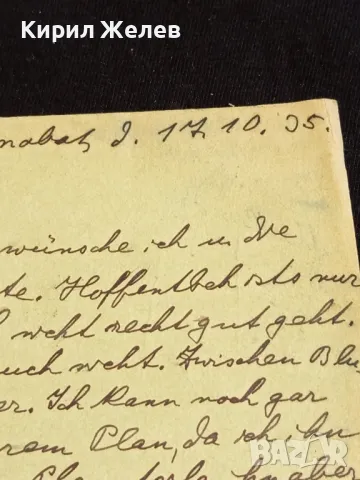 Кирил Желев
nobat, d. 17.10.35.
wünsche ich u. die
te. Hoffentlich ists nur
weht recht gut geht.
uch weht. Zwischen Blu-
er. Ich kann noch gar
rem Plan, da ich
aber
bazar